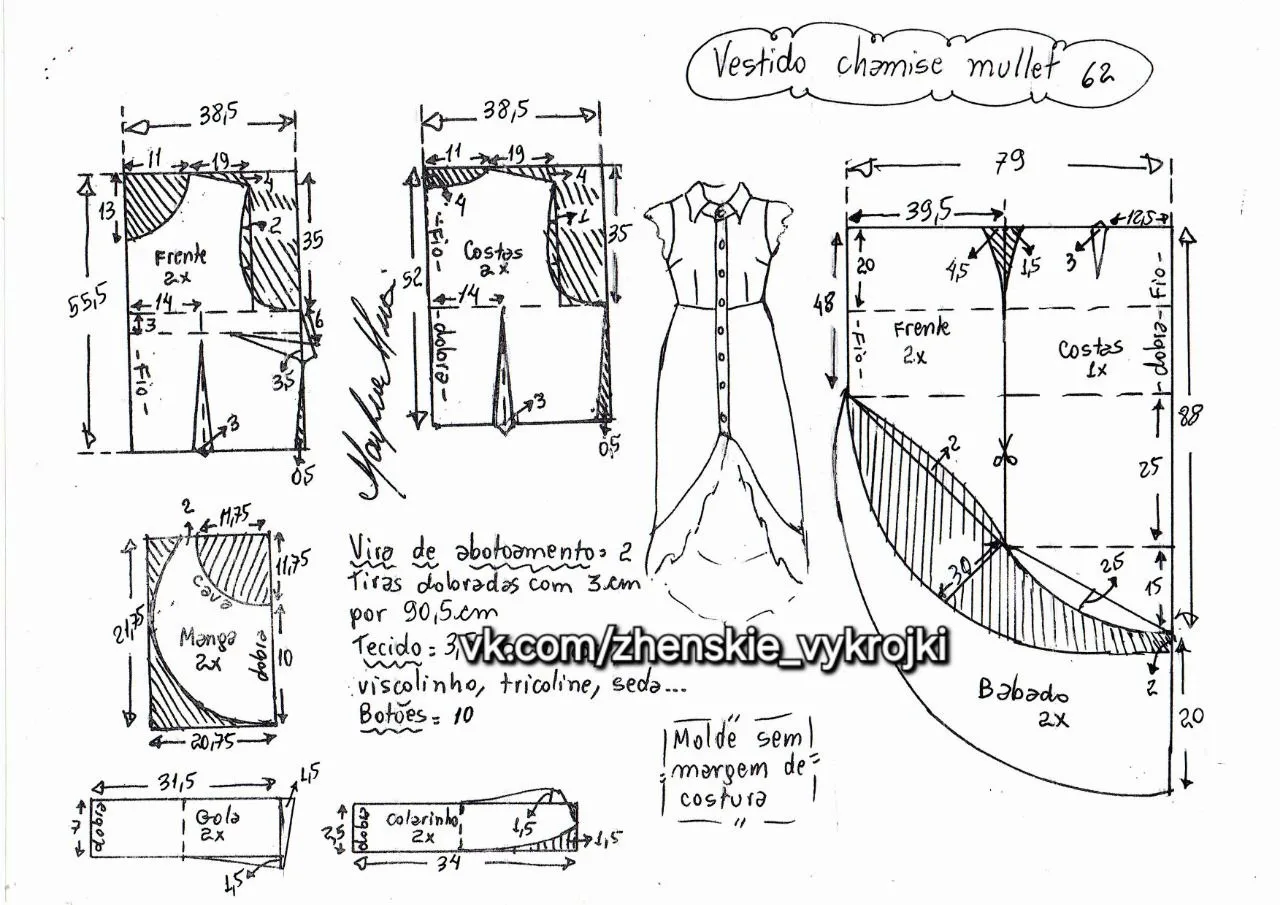 Vestido chamise mullet 62
38,5
11
19
4
13
2
35
Frente
2x
55,5
14
3
6
3,5
-Fio-
3
0,5
38,5
11
19
4
4
1
35
-Fio-
Costas
2x
52
14
-dobra-
3
0,5
79
39,5
12,5
20
4,5
1,5
3
48
-Fio-
Frente
2x
Costas
1x
-dobra-Fio-
88
2
25
30
25
15
2
Babado
2x
20
2
11,75
11,75
cava
21,75
Manga
2x
dobra
10
20,75
Vira de abotoamento= 2
Tiras dobradas com 3.cm
por 90,5.cm
Tecido = 3,
vk.com/zhenskie_vykrojki
viscolinho, tricoline, seda...
Botões = 10
Molde sem
margem de
costura
31,5
1,5
7
dobra
Gola
2x
1,5
2,5
dobra
Colarinho
2x
1,5
1,5
34